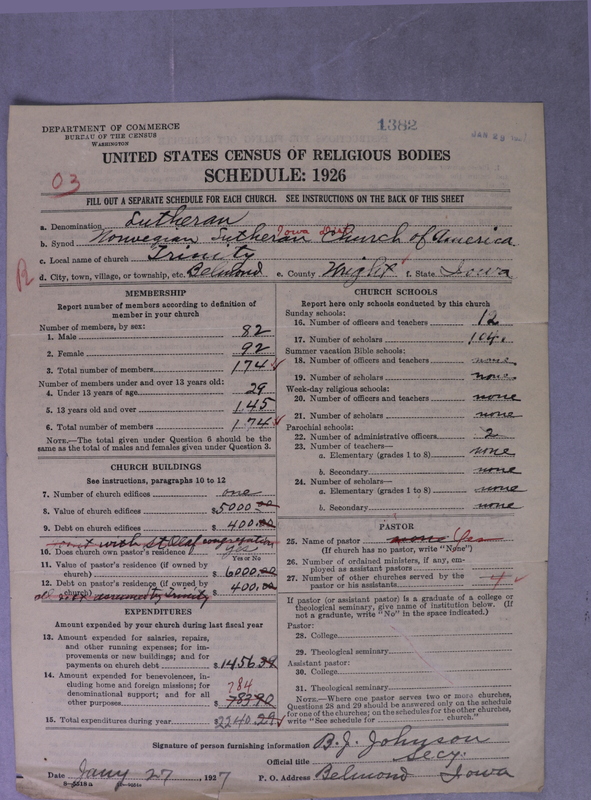 1382
JAN 29
DEPARTMENT OF COMMERCE
BUREAU OF THE CENSUS
WASHINGTON
UNITED STATES CENSUS OF RELIGIOUS BODIES
SCHEDULE: 1926
03
FILL OUT A SEPARATE SCHEDULE FOR EACH CHURCH. SEE INSTRUCTIONS ON THE BACK OF THIS SHEET
a. Denomination Lutheran
Iowa Dist
b. Synod Norwegian Lutheran Church of America
c. Local name of church Trinity
R
d. City, town, village, or township, etc. Belmond e. County Wright f. State Iowa
MEMBERSHIP
Report number of members according to definition of
member in your church
Number of members, by sex:
1. Male 82
2. Female 92
3. Total number of members 174
Number of members under and over 13 years old:
4. Under 13 years of age 29
5. 13 years old and over 145
6. Total number of members 174
NOTE.—The total given under Question 6 should be
same as the total of males and females given under Question 3.
CHURCH BUILDINGS
See instructions, paragraphs 10 to 12
7. Number of church edifices one
8. Value of church edifices $5000.00
9. Debt on church edifices $400.00
with St Olaf congregation
10. Does church own pastor's residence yes
Yes or No
11. Value of pastor's residence (if owned by
church) $6000.00
12. Debt on pastor's residence (if owned by
church) $400.00
assumed by Trinity
EXPENDITURES
Amount expended by your church during last fiscal year
13. Amount expended for salaries, repairs,
and other running expenses; for im-
provements or new buildings; and for
payments on church debt $1456.39
14. Amount expended for benevolences, in-
cluding home and foreign missions; for
denominational support; and for all
other purposes $783.90
784
15. Total expenditures during year $2240.29
CHURCH SCHOOLS
Report here only schools conducted by this church
Sunday schools:
16. Number of officers and teachers 12
17. Number of scholars 104
Summer vacation Bible schools:
18. Number of officers and teachers none
19. Number of scholars none
Week-day religious schools:
20. Number of officers and teachers none
21. Number of scholars none
Parochial schools:
22. Number of administrative officers 2
23. Number of teachers—
a. Elementary (grades 1 to 8) none
b. Secondary none
24. Number of scholars—
a. Elementary (grades 1 to 8) none
b. Secondary none
PASTOR
25. Name of pastor none Yes
(If church has no pastor, write "None")
26. Number of ordained ministers, if any, em-
ployed as assistant pastors
27. Number of other churches served by the
pastor or his assistants 4
If pastor (or assistant pastor) is a graduate of a college or
theological seminary, give name of institution below. (If
not a graduate, write "No" in the space indicated.)
Pastor:
28. College
29. Theological seminary
Assistant pastor:
30. College
31. Theological seminary
NOTE.—Where one pastor serves two or more churches,
Questions 28 and 29 should be answered only on the schedule
for one of the churches; on the schedules for the other churches,
write "See schedule for church."
Signature of person furnishing information B. J. Johnson
Official title Secy.
Date Jany 27, 1927 P. O. Address Belmond Iowa